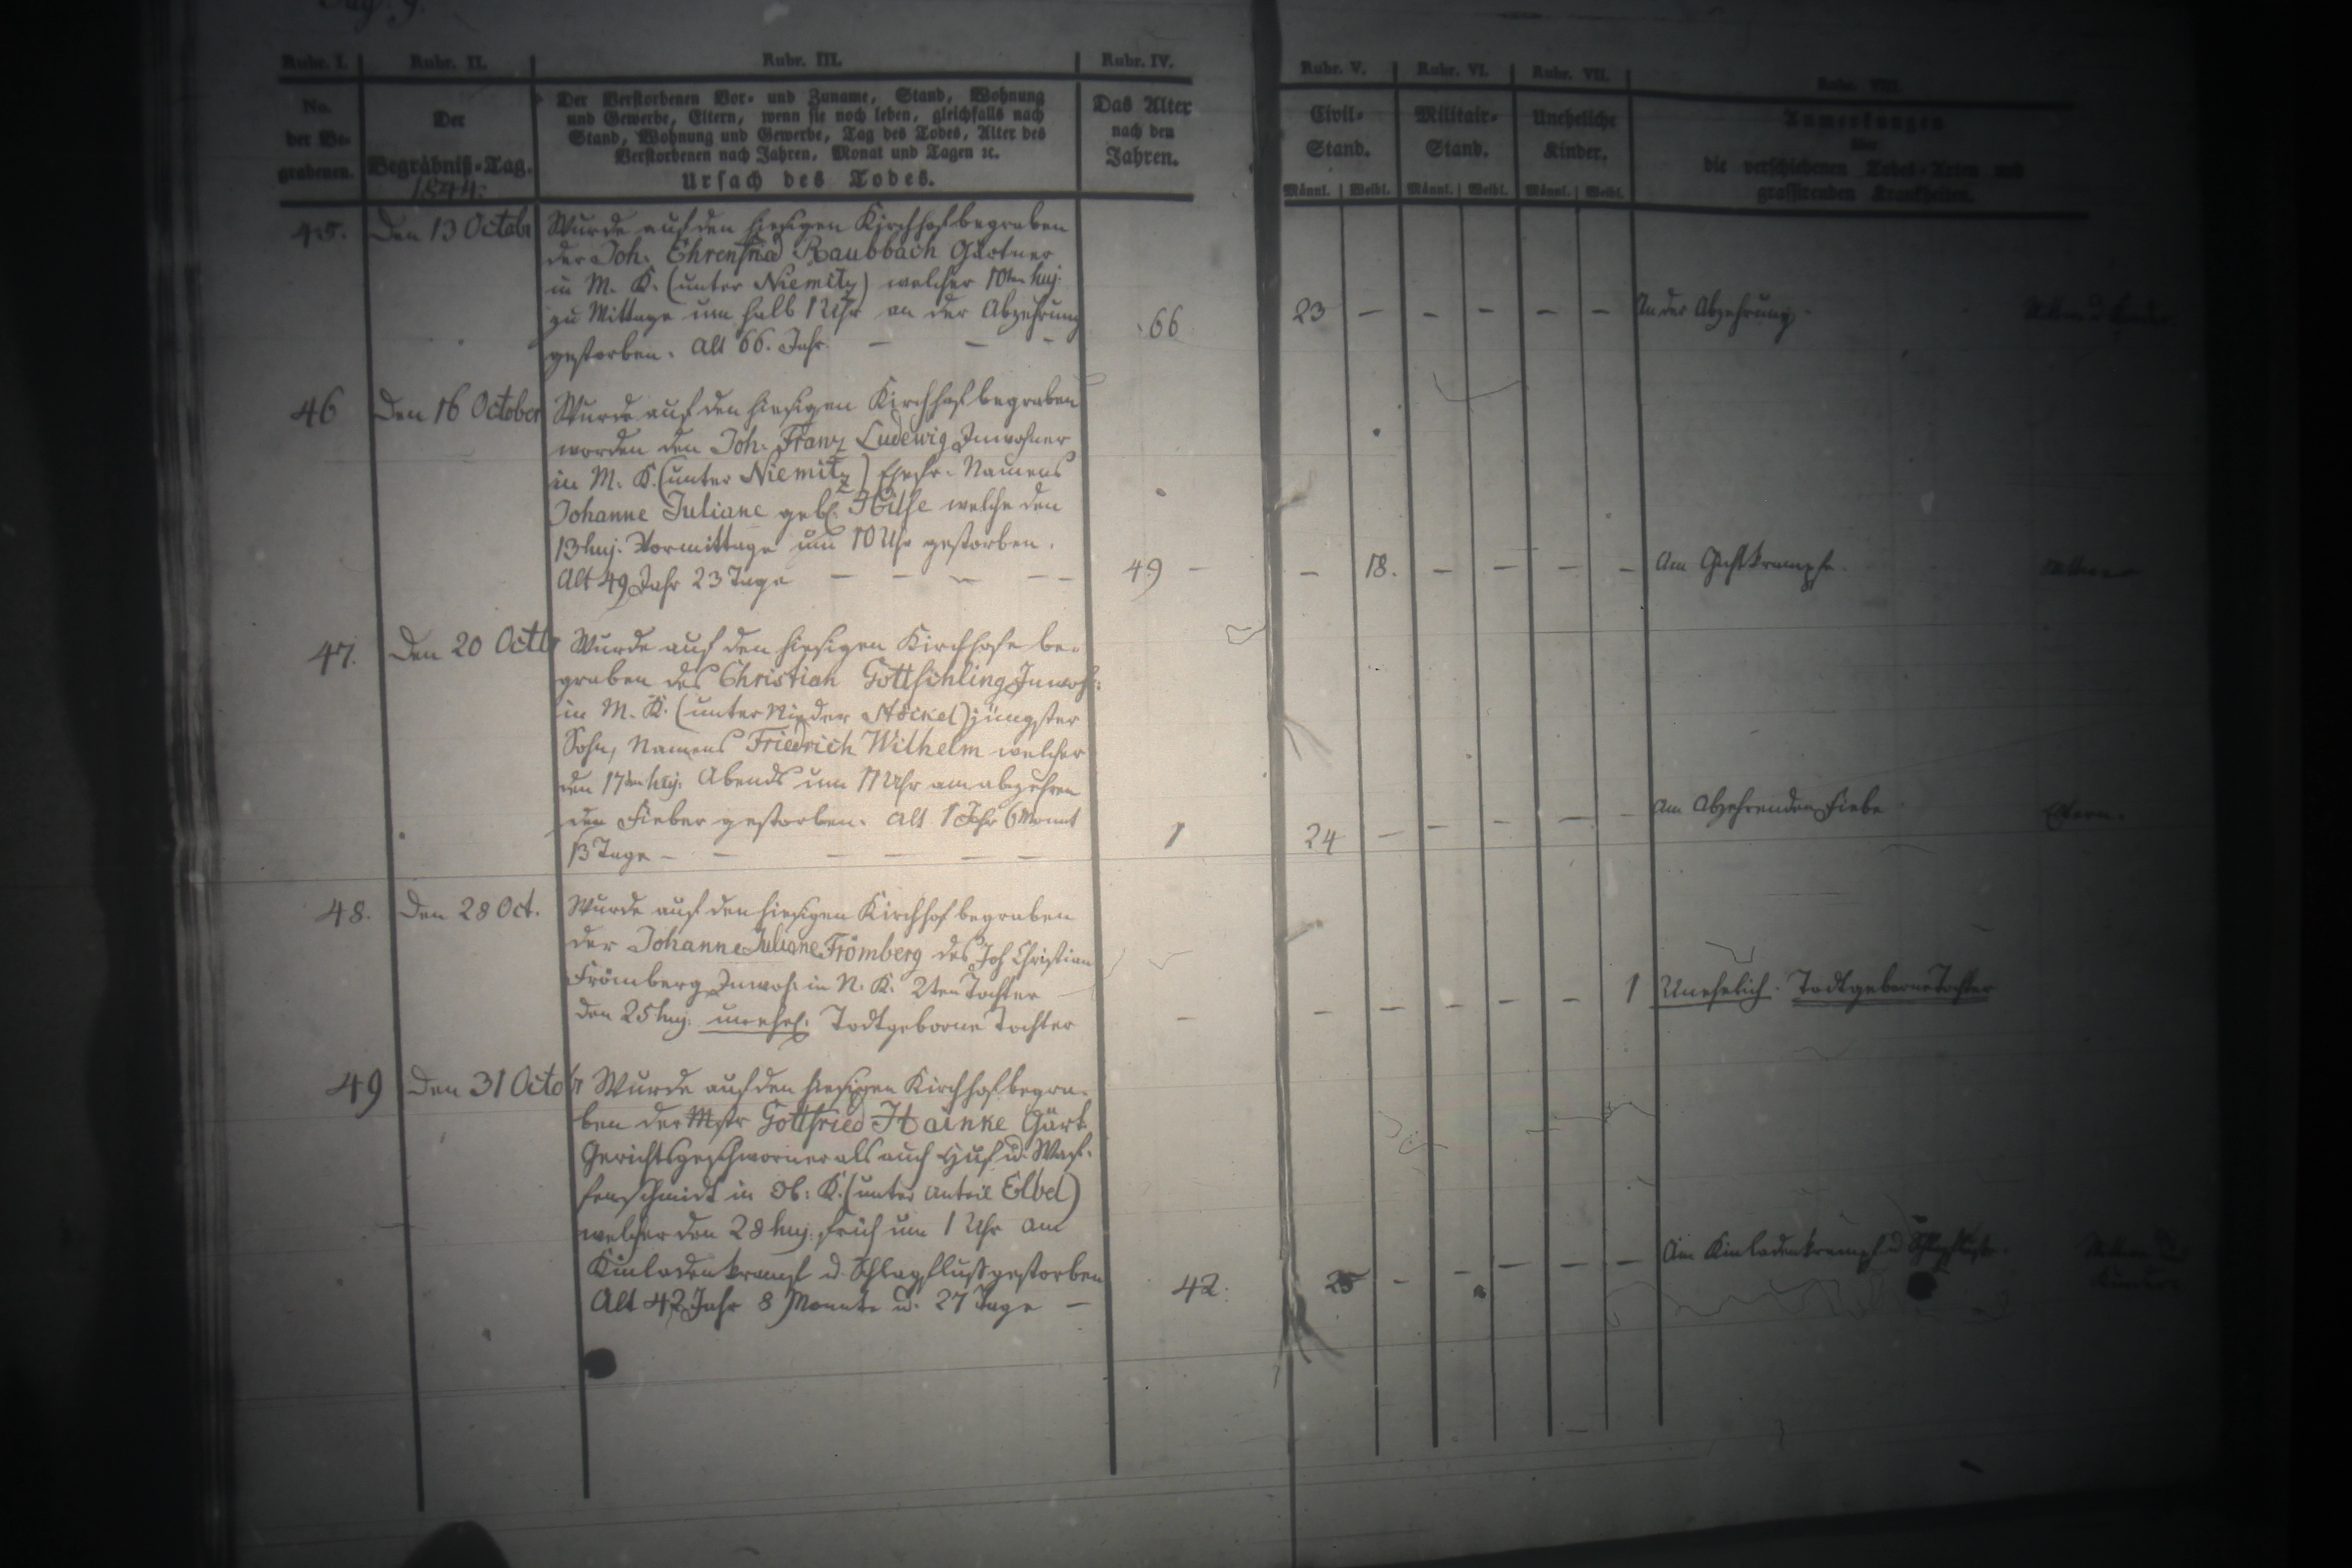 Pag. 9.
Rubr. I. Rubr. II. Rubr. III. Rubr. IV. Rubr. V. Rubr. VI. Rubr. VII. Rubr. VIII.
No.
der Be-
grabenen.
Der
Begräbniß-Tag.
1844.
Der Verstorbenen Vor- und Zuname, Stand, Wohnung
und Gewerbe, Eltern, wenn sie noch leben, gleichfalls nach
Stand, Wohnung und Gewerbe, Tag des Todes, Alter des
Verstorbenen nach Jahren, Monat und Tagen ꝛc.
Ursach des Todes.
Das Alter
nach den
Jahren.
Civil-
Stand.
Männl. Weibl.
Militair-
Stand.
Männl. Weibl.
Uneheliche
Kinder.
Männl. Weibl.
Anmerkungen
über
die verschiedenen Todes-Arten und
grassirenden Krankheiten.
45. Den 13 Octobr
Wurde auf den hiesigen Kirchhof begraben
der Joh. Ehrenfried Raubbach Gärtner
in M. K. (unter Niemitz) welcher 10ten huj.
zu Mittage um halb 1 Uhr an der Abzehrung
gestorben. Alt 66. Jahr. — — -
66 23 — - - — — An der Abzehrung.
46 Den 16 October
Wurde auf den hiesigen Kirchhof begraben
worden den Joh. Franz Ludewig Inwohner
in M. K. (unter Niemitz) Ehefr. Namens
Johanne Juliane geb. Hilse welche den
13 huj. Vormittage um 10 Uhr gestorben.
Alt 49 Jahr 23 Tage — — — — —
49 — — 18. — — — — Am
47. Den 20 Octbr
Wurde auf den hiesigen Kirchhofe be-
graben des Christian Gottschling Inwoh:
in M. K. (unter Nieder Stöckel) jüngster
Sohn, Namens Friedrich Wilhelm welcher
den 17ten huj. Abends um 11 Uhr am abzehren
den Fieber gestorben. Alt 1 Jahr 6 Monat
13 Tage — — — — — —
1 24 — — — — — Am Abzehrenden Fiebe
Eltern.
48. Den 28 Oct.
Wurde auf den hiesigen Kirchhof begraben
der Johanne Juliane Frömberg des Joh Christian
Frömberg Inwoh. in N. K. 2ten Tochter
den 25 huj. unehel. Todtgeborne Tochter
— — — — — — 1 Unehelich. Todtgeborne Tochter
49 Den 31 Octobr
Wurde auf den hiesigen Kirchhof begra-
ben der Mstr Gottfried Hainke Gärt.
Gerichtsgeschworner als auch Huf u. Waf-
fenschmidt in Ob: K. (unter Anteil Elbel)
welcher den 28 huj. früh um 1 Uhr am
Kinladenkrampf u. Schlagfluß gestorben
Alt 42 Jahr 8 Monate u. 27 Tage —
42. 25 — — — — — Am Kinladenkrampf u. Schlagfluße.